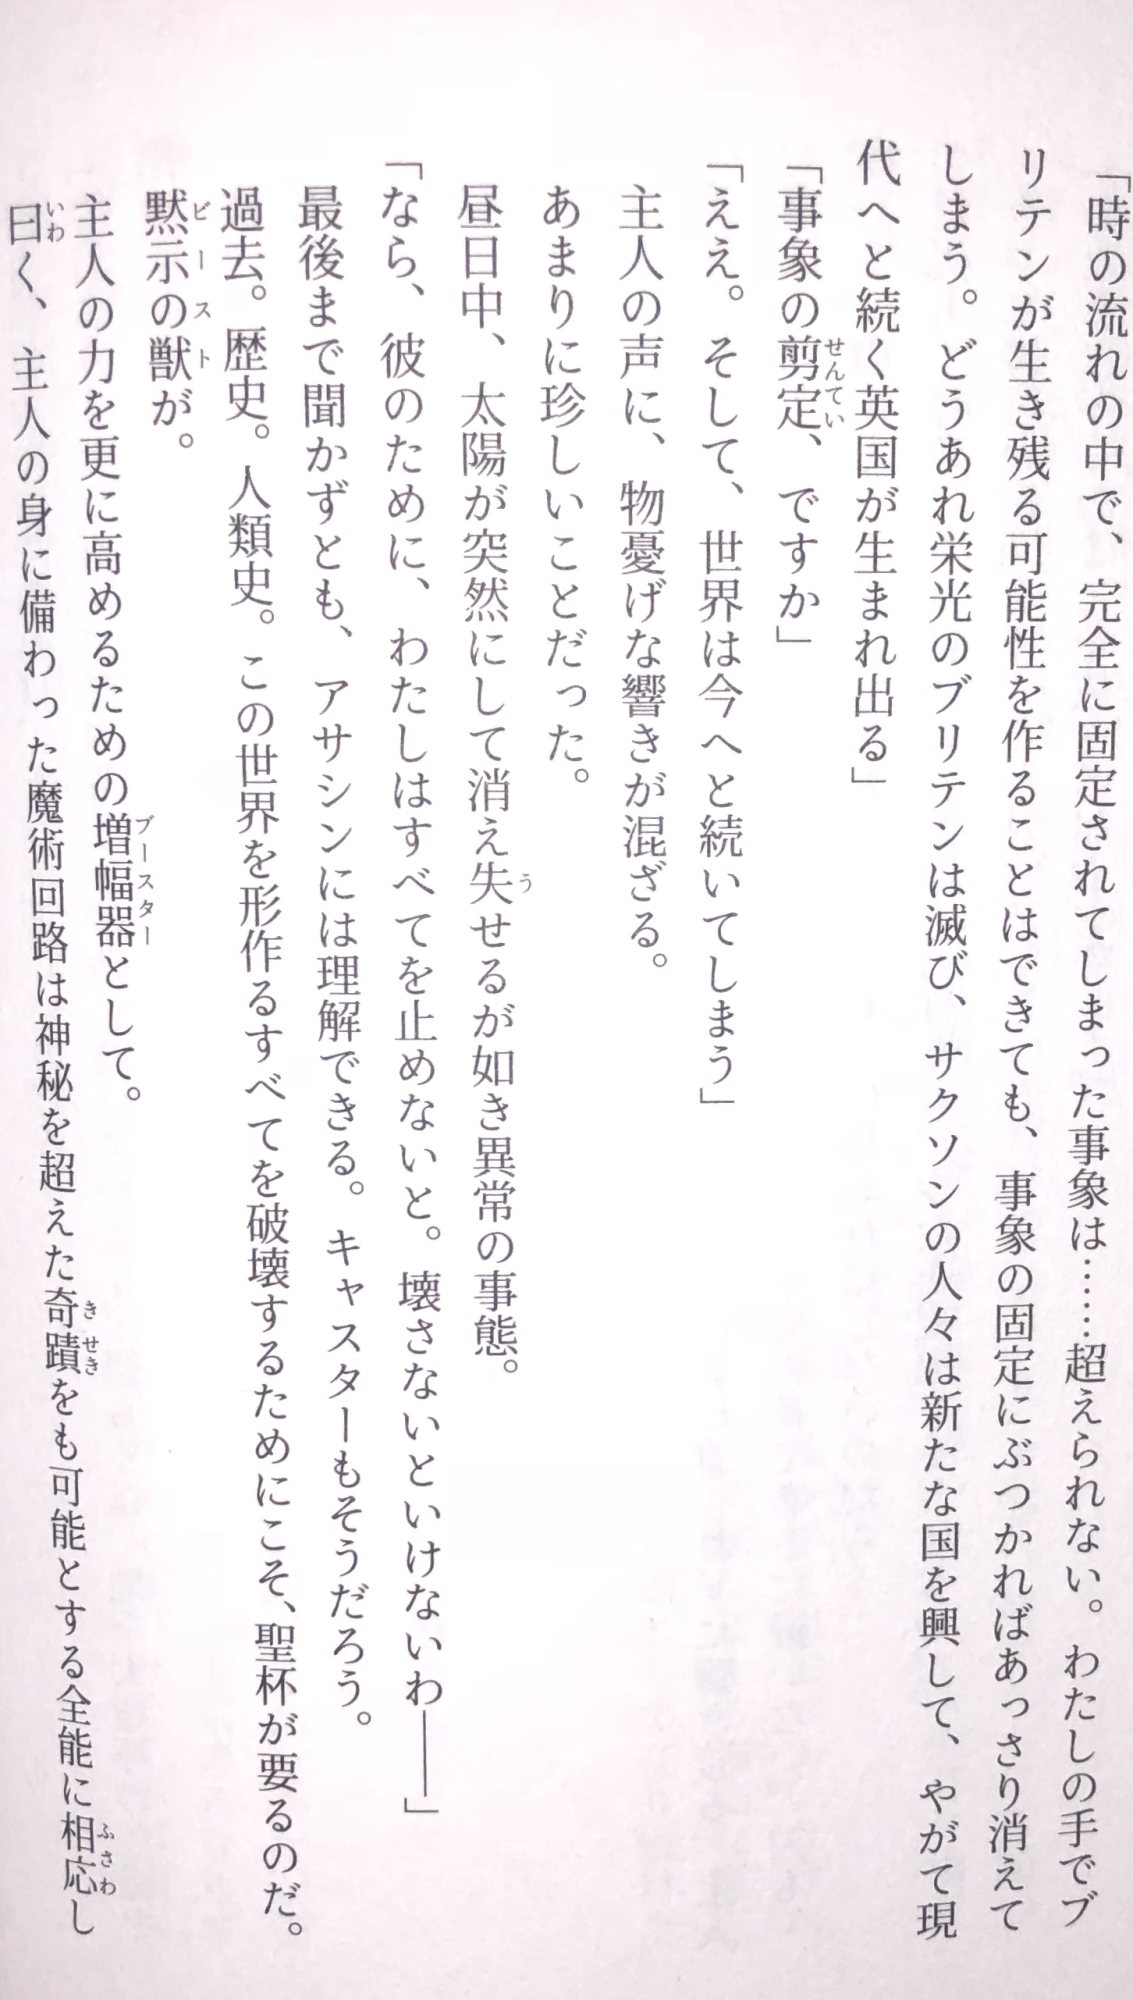 「時の流れの中で、完全に固定されてしまった事象は……超えられない。わたしの手でブ
リテンが生き残る可能性を作ることはできても、事象の固定にぶつかればあっさり消えて
しまう。どうあれ栄光のブリテンは滅び、サクソンの人々は新たな国を興して、やがて現
代へと続く英国が生まれ出る」
「事象の剪定、ですか」
せんてい
「ええ。そして、世界は今へと続いてしまう」
主人の声に、物憂げな響きが混ざる。
あまりに珍しいことだった。
昼日中、太陽が突然にして消え失せるが如き異常の事態。
う
「なら、彼のために、わたしはすべてを止めないと。壊さないといけないわ――」
最後まで聞かずとも、アサシンには理解できる。キャスターもそうだろう。
過去。歴史。人類史。この世界を形作るすべてを破壊するためにこそ、聖杯が要るのだ。
黙示の獣が。
ビースト
主人の力を更に高めるための増幅器として。
ブースター
曰く、主人の身に備わった魔術回路は神秘を超えた奇蹟をも可能とする全能に相応し
いわ きせき ふさわ